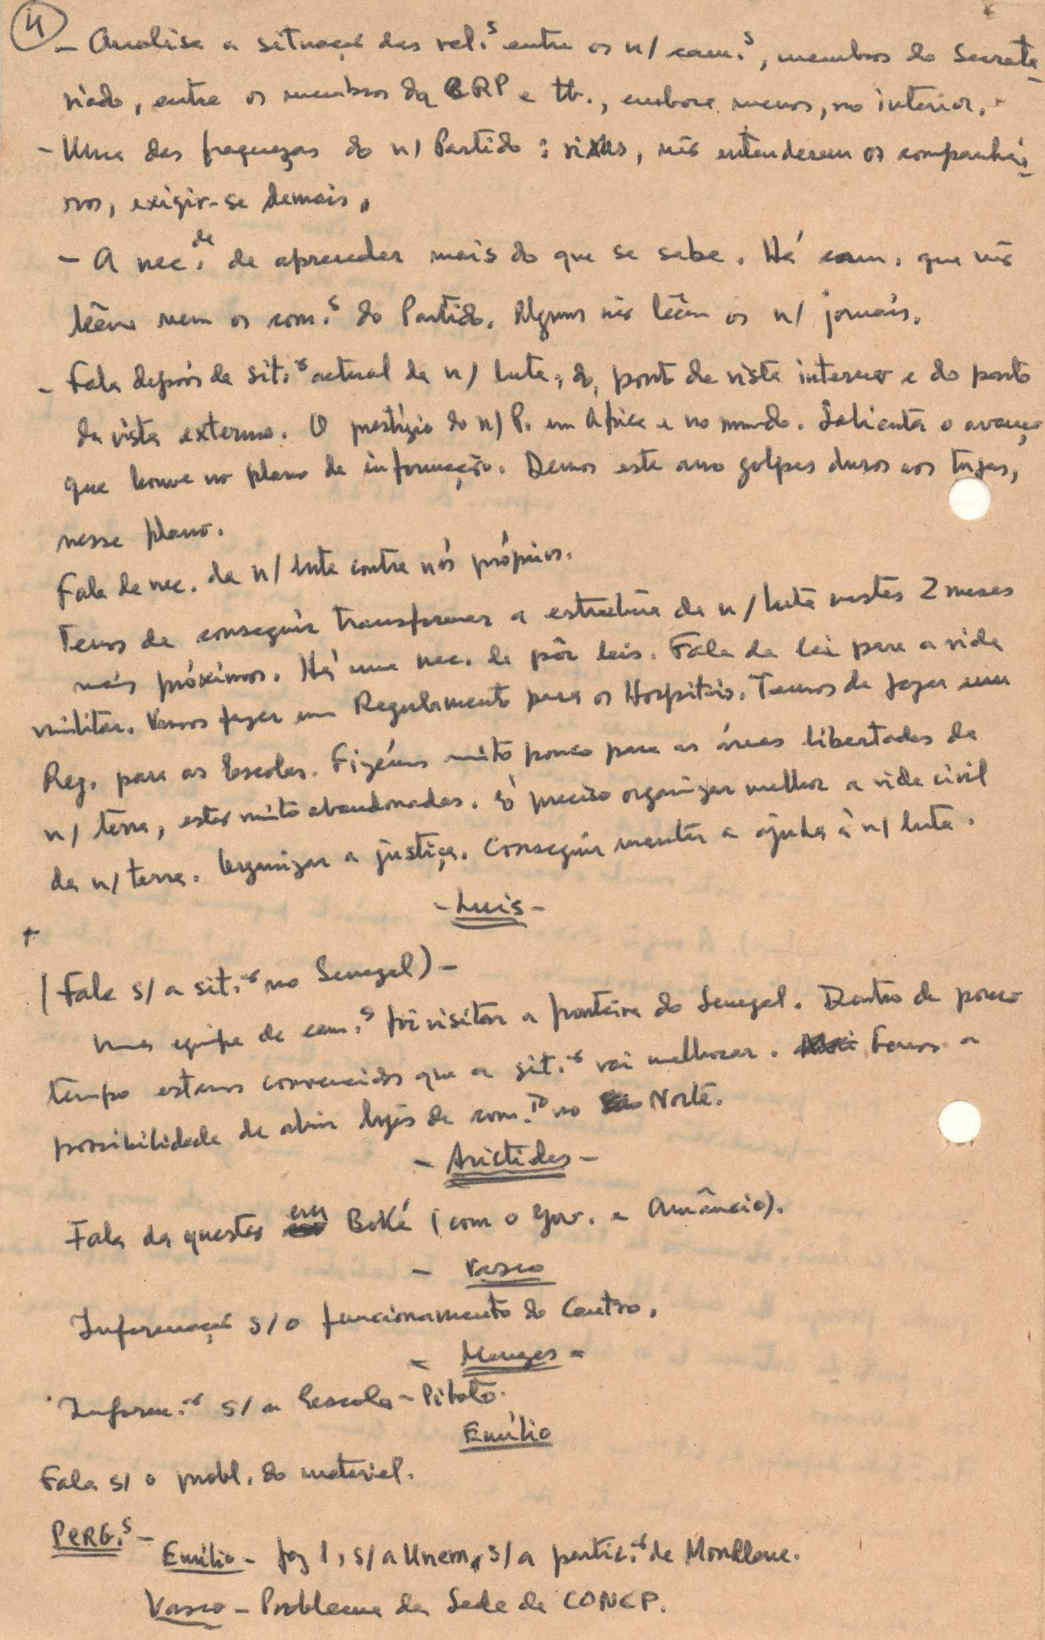 4
- Analisa a situação das rel.s entre os n/ cam.s, membros do Secreta-
riado, entre os membros da CRP e tb., embora menos, no interior.
- Uma das fraquezas do n/ Partido: rixas, não entenderem os companhei-
ros, exigir-se demais.
- A nec.de de aprender mais do que se sabe. Há cam. que não
lêem nem os com.s do Partido. Alguns não lêem os n/ jornais.
- Fala depois da sit.ão actual da n/ luta, do ponto de vista interno e do ponto
de vista externo. O prestígio do n/ P. em África e no mundo. Salienta o avanço
que houve no plano da informação. Demos este ano golpes duros aos tugas,
nesse plano.
Fala da nec. da n/ luta contra nós próprios.
Temos de conseguir transformar a estrutura da n/ luta nestes 2 meses
mais próximos. Há uma nec. de pôr leis. Fala da lei para a vida
militar. Vamos fazer um Regulamento para os Hospitais. Temos de fazer um
Reg. para as Escolas. Fizémos muito pouco para as áreas libertadas da
n/ terra, estão muito abandonadas. É preciso organizar melhor a vida civil
da n/ terra. Organizar a justiça. Conseguir manter a ajuda à n/ luta.
- Luis -
(Fala s/ a sit.ão no Senegal) -
Uma equipa de cam.s foi visitar a fronteira do Senegal. Dentro de pouco
tempo estamos convencidos que a sit.ão vai melhorar. Temos a
possibilidade de abrir lojas de com.o no Norte.
- Aristides -
Fala da questão em Boké (com o Gov. e Amâncio).
- Vasco
Informação s/ o funcionamento do Centro.
- Menezes -
Inform.ão s/ a Escola-Piloto.
Emílio
Fala s/ o probl. do material.
PERG.s -
Emílio - faz 1, s/ a Unem, s/ a partic.ão de Mondlane.
Vasco - Problema da Sede da CONCP.